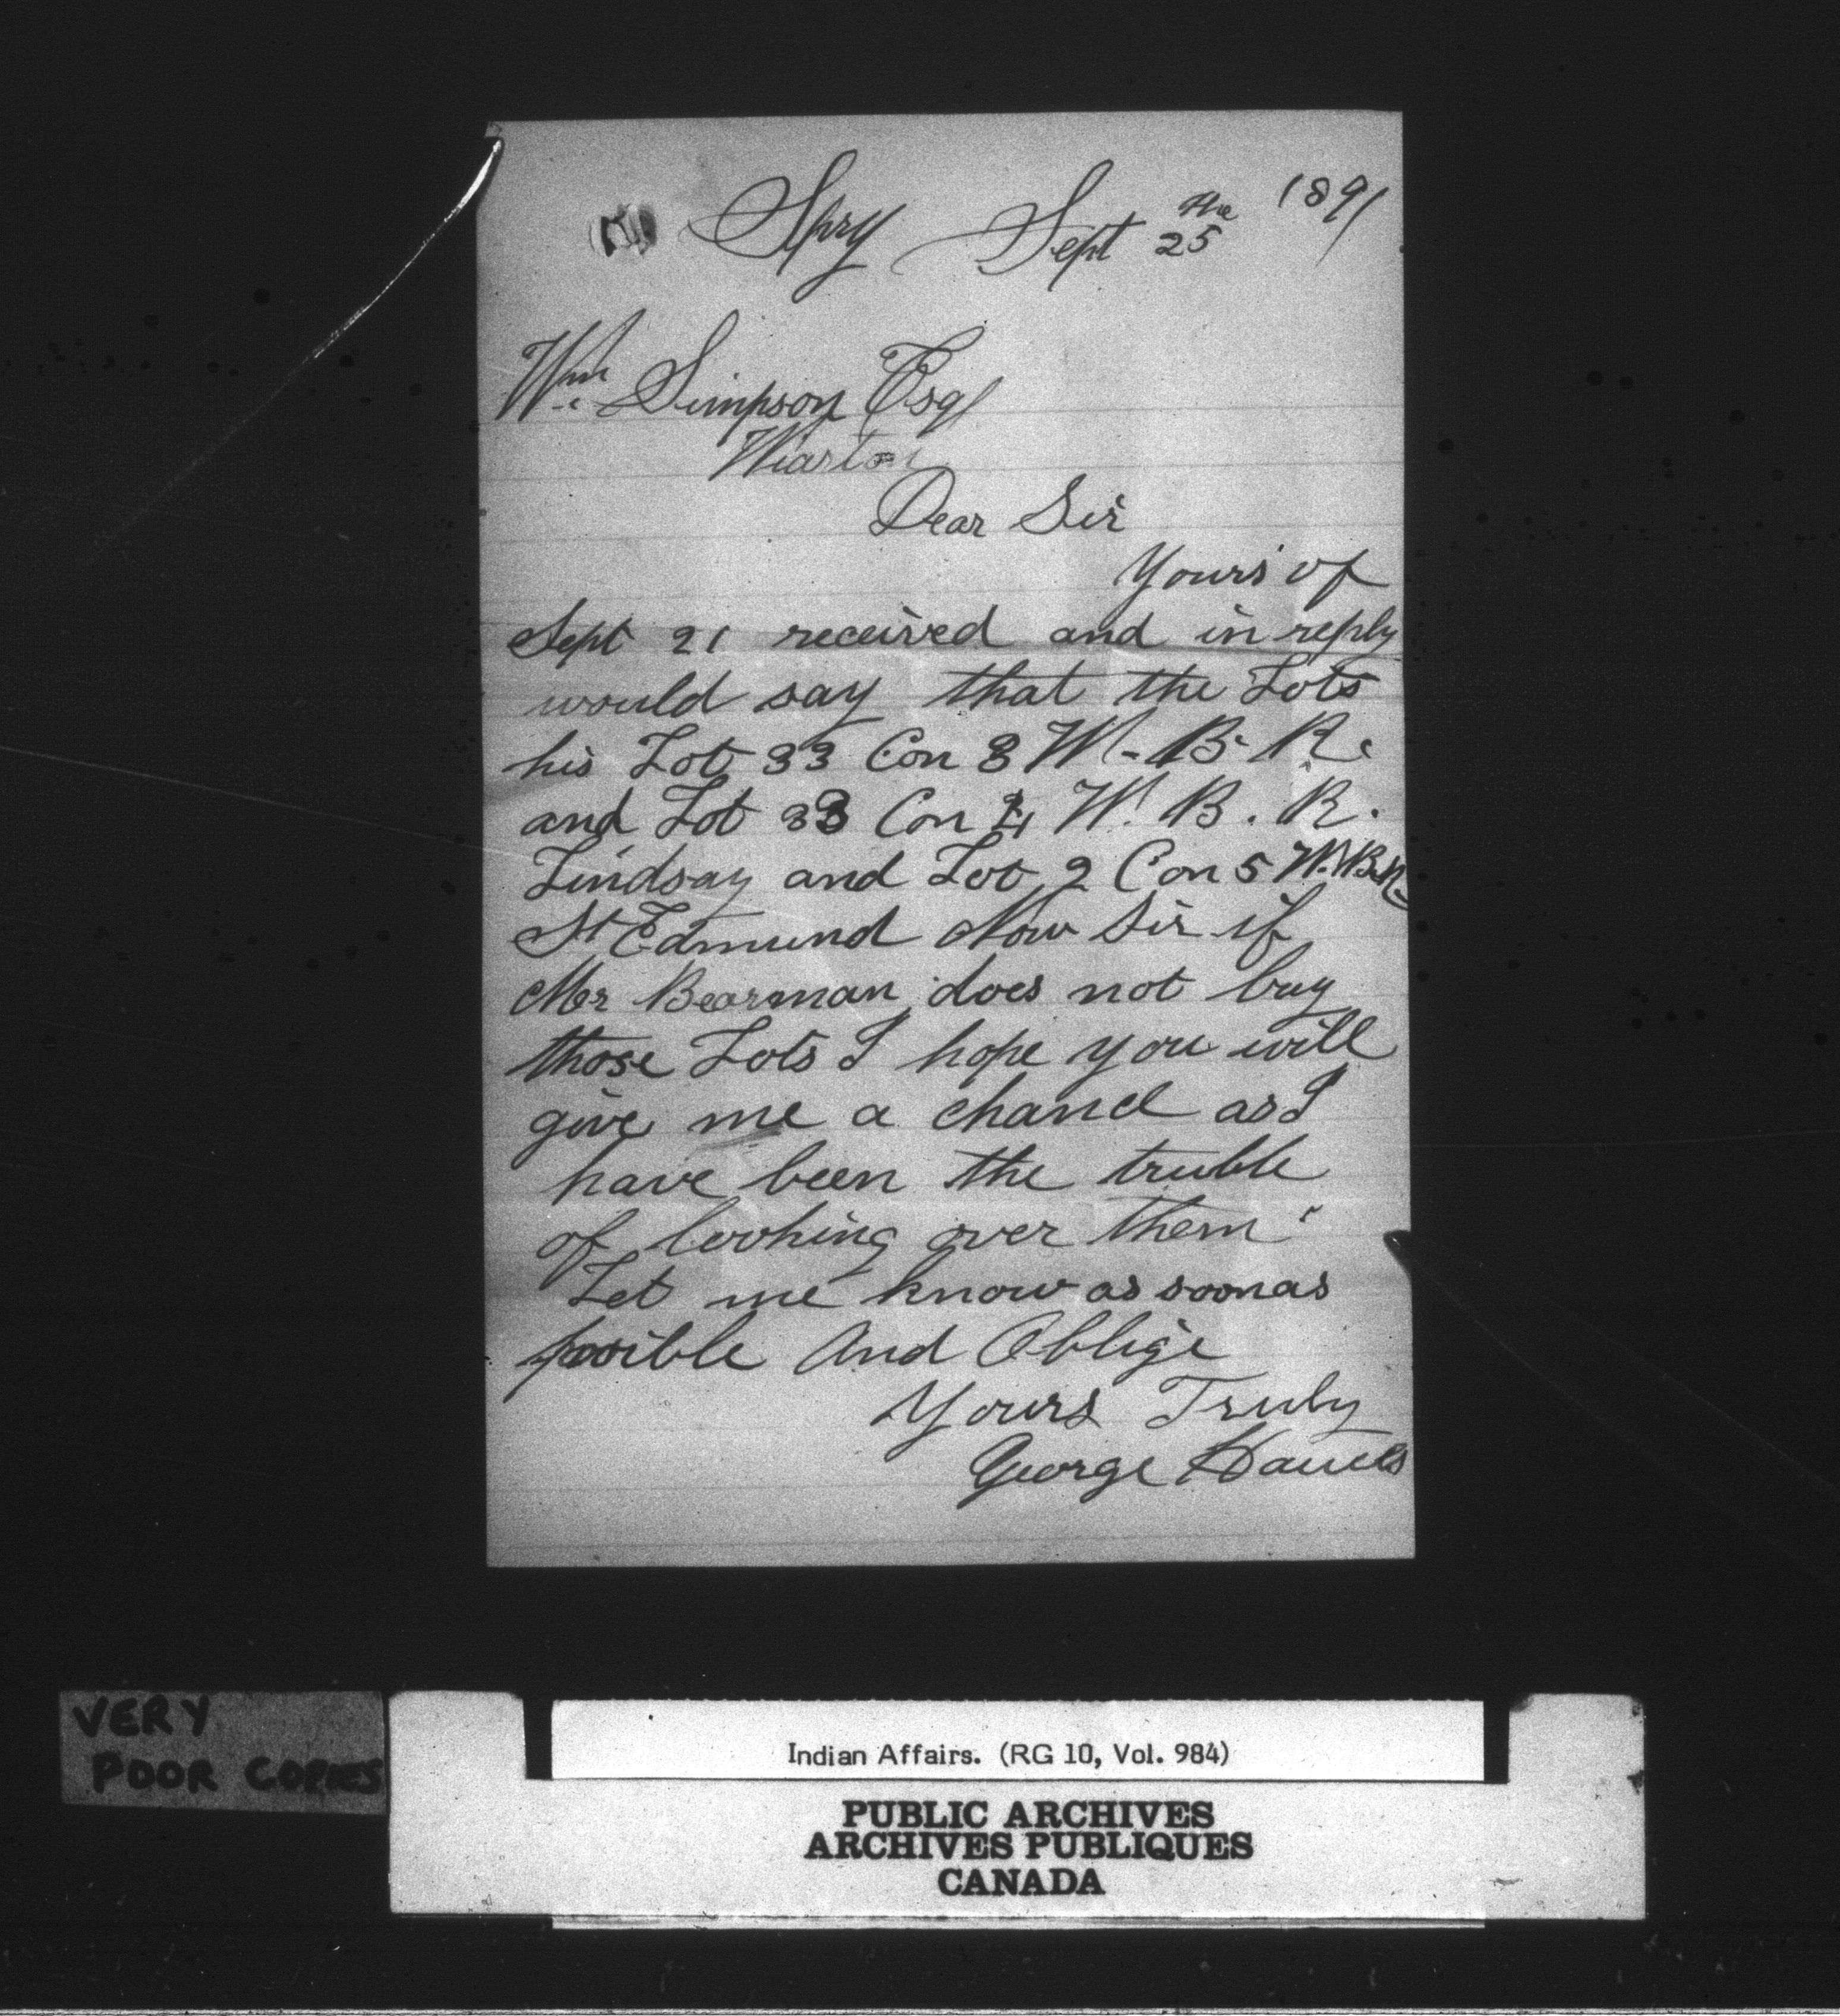 Spry Sept 25the 1891
Wm Simpson Esq
Wiarton
Dear Sir
Yours of
Sept 21 received and in reply
would say that the Lots
his Lot 33 Con 3 W. B. R.
and Lot 33 Con 4 W. B. R.
Lindsay and Lot 2 Con 5 W. B. R.
St Edmund Now Sir if
Mr Bearman does not buy
those Lots I hope you will
give me a chance as I
have been the truble
of looking over them
Let me know as soon as
posible And Oblige
Yours Truly
George
VERY
POOR COPIES
Indian Affairs. (RG 10, Vol. 984)
PUBLIC ARCHIVES
ARCHIVES PUBLIQUES
CANADA